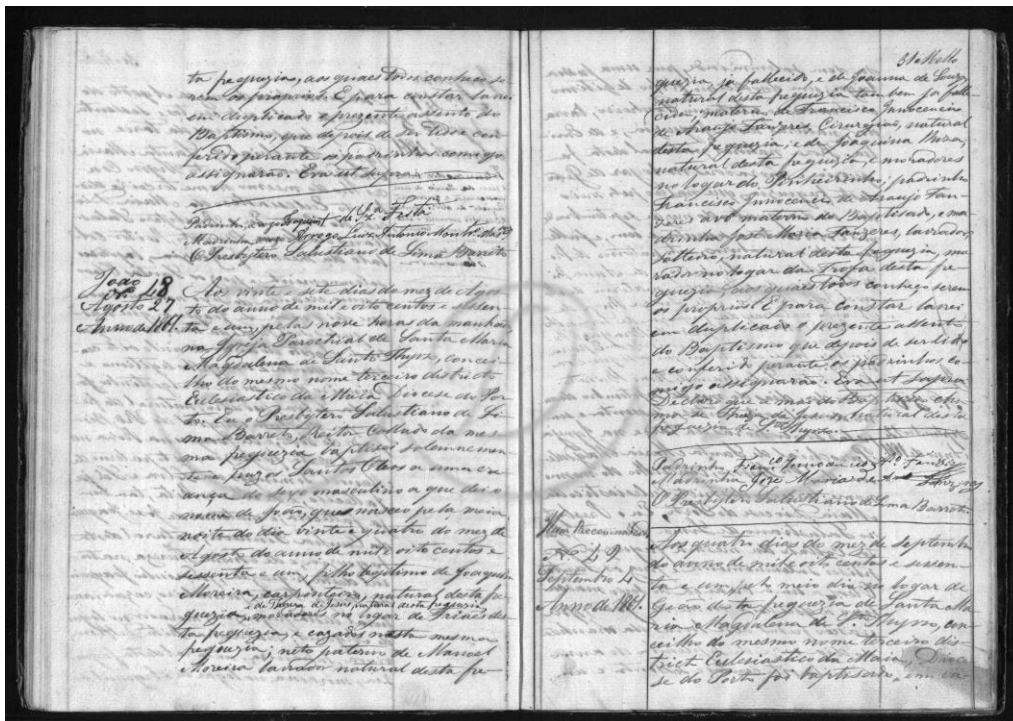 ta freguezia, aos quaes todos conheço se-
rem os proprios. E para constar lavrei
em duplicado o prezente assento do
Baptismo, que depois de ser lido e con-
ferido perante os padrinhos comigo
assignarão. Era ut supra
Padrinho, a rogo
Madrinha, a rogo Luiz Antonio
O Presbytero Salustiano de Lima Barreto
João
Nº 48
Agosto 27
Anno de 1861.
Aos vinte e sete dias do mez de Agos-
to do anno de mil e oito centos e sessen-
ta e um, pelas nove horas da manhaã,
na Igreja Parochial de Santa Maria
Magdalena de Santo Thyrso, concei-
lho do mesmo nome terceiro districto
Eclesiastico da Maia Diocese do Por-
to. Eu o Presbytero Salustiano de Li-
ma Barreto, Reitor Collado da mes-
ma freguezia baptisei solemnemen-
te e puz os Santos Oleos a uma cre-
ança do sexo masculino a que dei o
nome de João, que nasceo pela meia
noite do dia vinte e quatro do mez de
Agosto do anno de mil e oito centos e
sessenta e um, filho legitimo de Joaquim
Moreira, carpinteiro, natural desta fre-
e de Thereza de Jesus, natural desta freguezia
guezia, moradores no logar de Friaes des-
ta freguezia, e cazados nesta mesma
freguezia; neto paterno de Manoel
Moreira lavrador natural desta fre-
31 Mello
guezia já fallecido, e de Joanna de Souza
natural desta freguezia tambem já falle-
cida; materno de Francisco Innocencio
de Araujo Fanzeres Cirurgião, natural
desta freguezia, e de Joaquina Roza,
natural desta freguezia, e moradores
no logar do Pinheirinho; padrinho
Francisco Innocencio de Araujo Fan-
zeres avô materno do Baptisado, e ma-
drinha José Maria Fanzeres, lavrador,
solteiro, natural desta freguezia, mo-
rador no logar da Trofa desta fre-
guezia, aos quaes todos conheço serem
os proprios. E para constar lavrei
em duplicado o prezente assento
do Baptismo que depois de ser lido
e conferido perante os padrinhos co-
migo assignarão. Era ut supra
Declaro que a mai do Baptisado cha-
ma se Thereza de Jesus natural desta
freguezia de Sto Thyrso.
Padrinho, Franco Innocencio
Madrinha José Maria de
O Presbytero Salustiano de Lima Barreto
Nº 49
Septembro 4
Anno de 1861.
Aos quatro dias do mez de Septembro
do anno de mil e oito centos e sessen-
ta e um, pelo meio dia no logar de
desta freguezia de Santa Ma-
ria Magdalena de Sto Thyrso, con-
ceilho do mesmo nome terceiro dis-
tricto Eclesiastico da Maia, Dioce-
se do Porto foi baptisado, em ca-